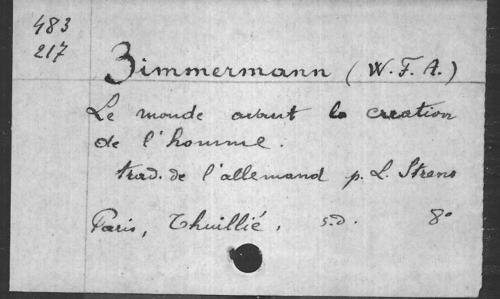 483
217
Zimmermann (W. F. A.)
Le monde avant la creation
de l'homme.
trad. de l'allemand p. L. Strens
Paris, Thuillié, s.d. 8°